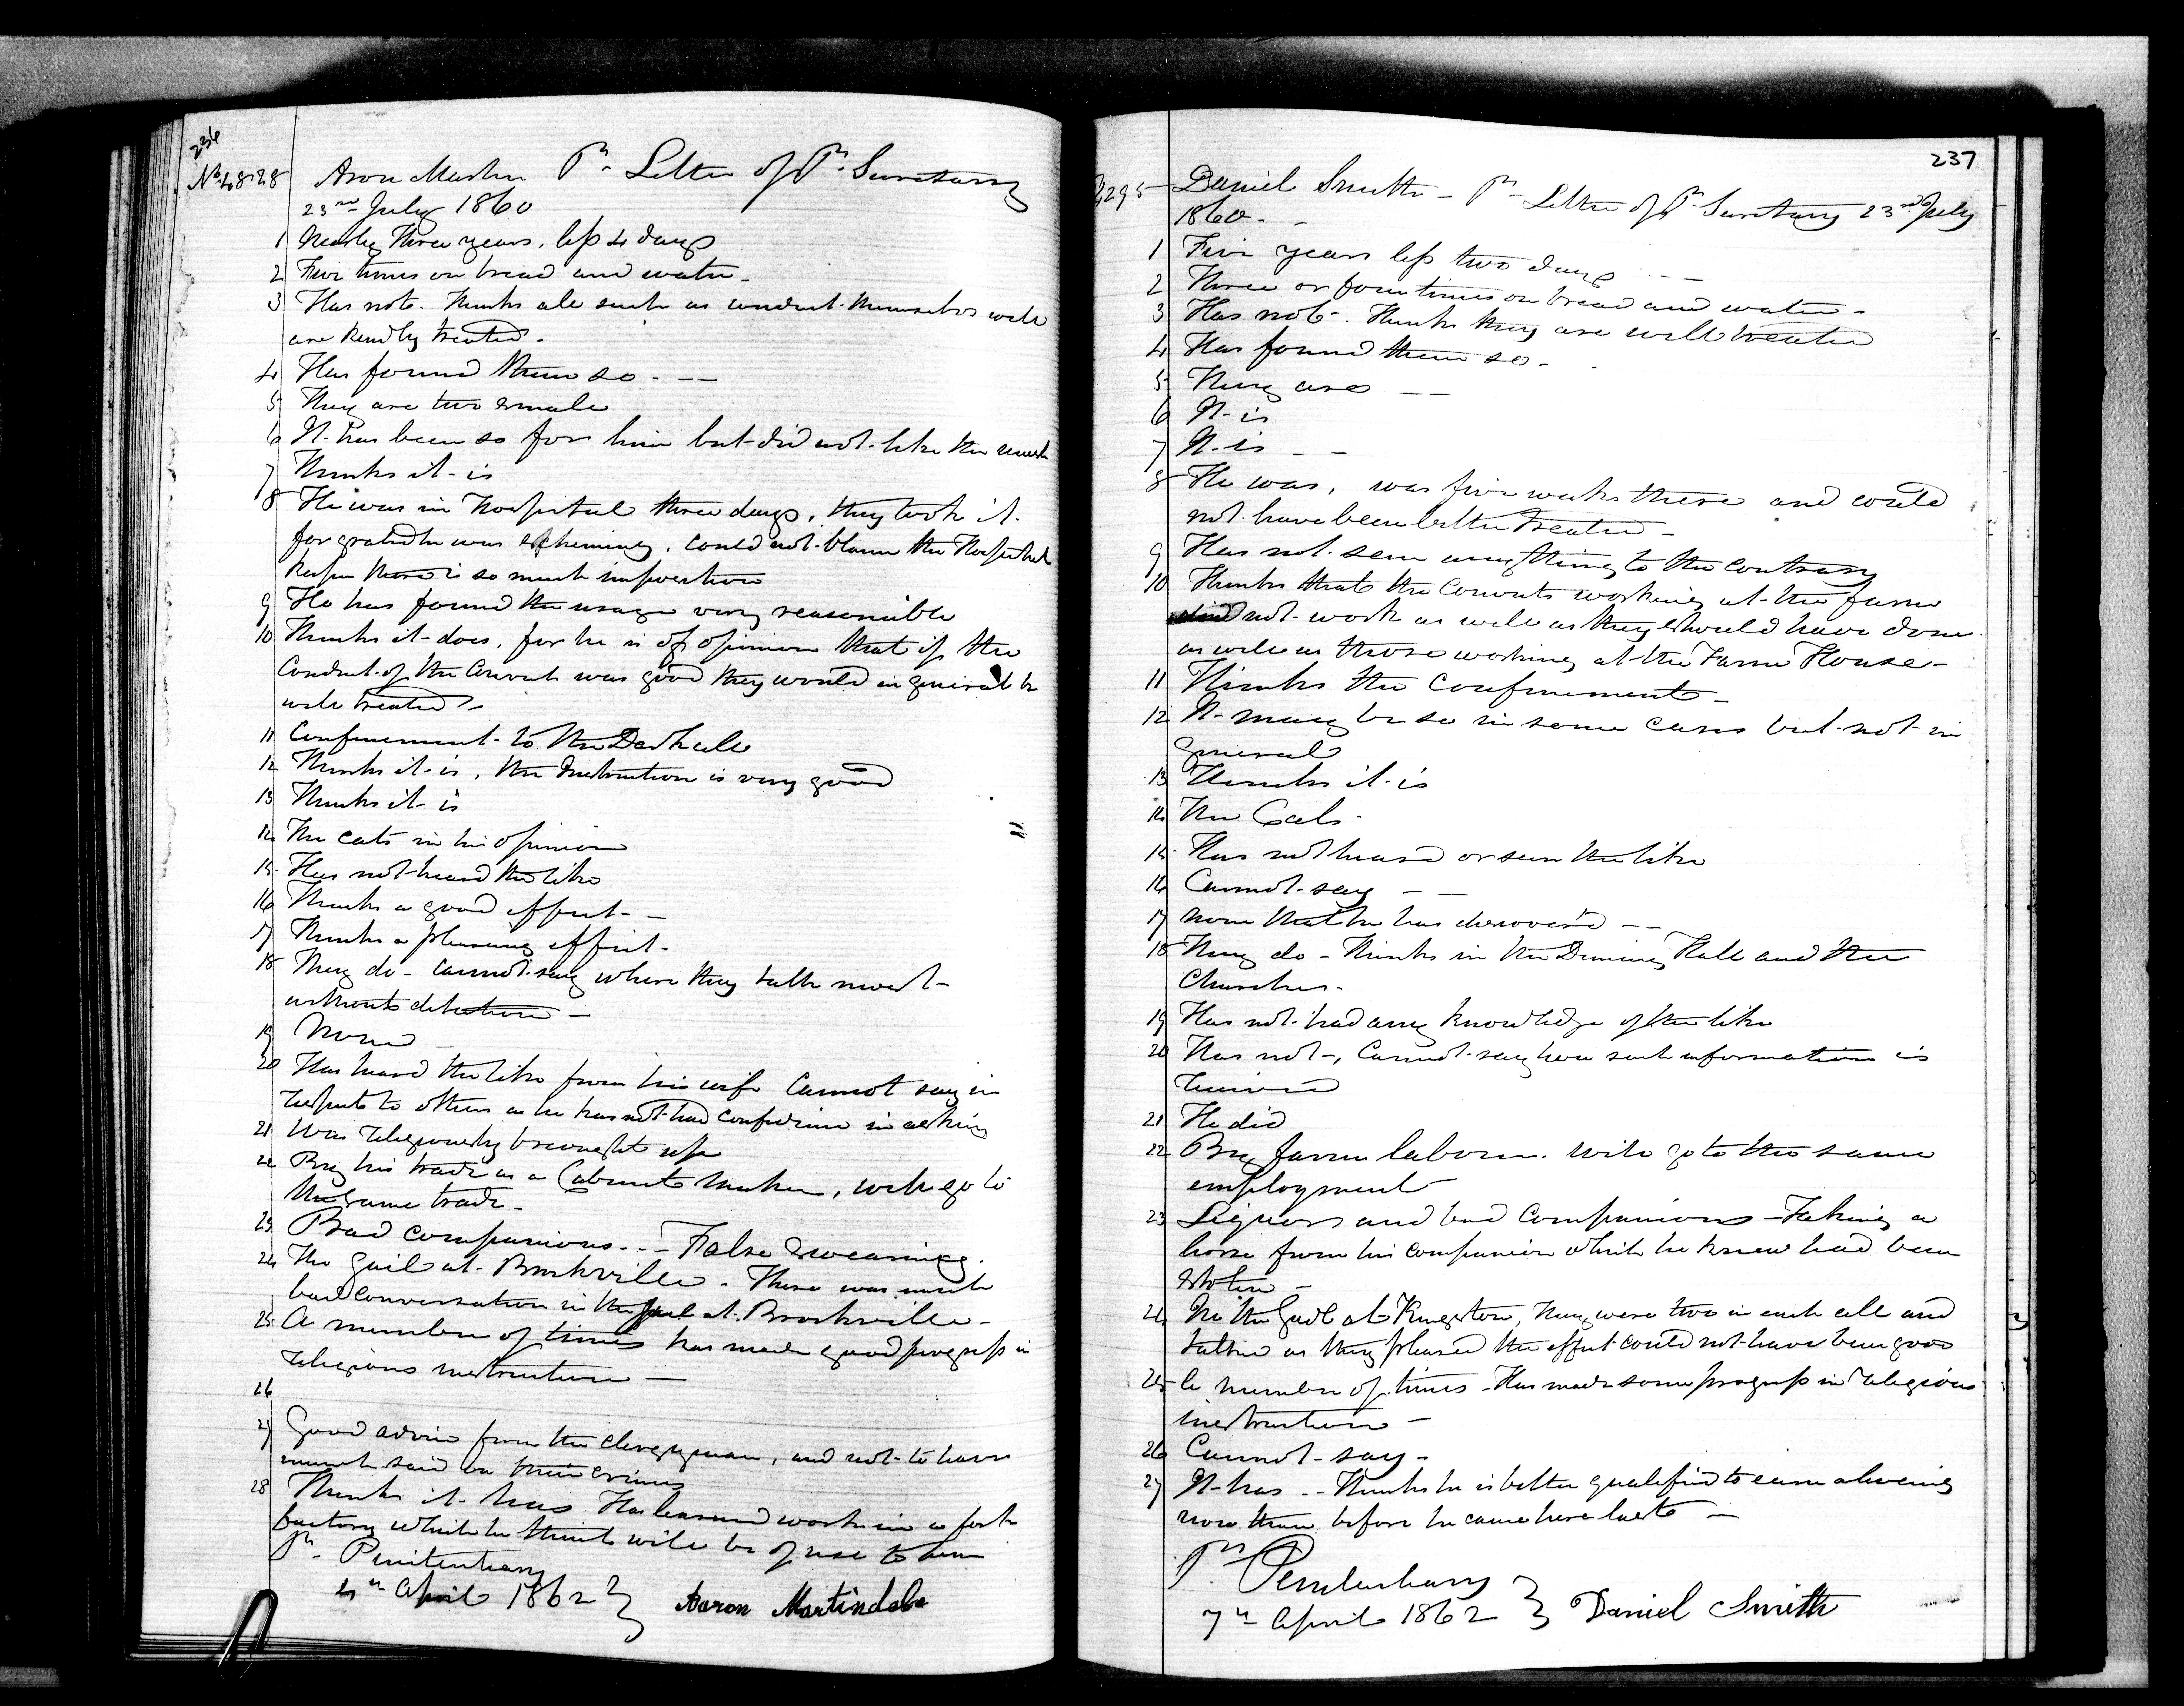 236
No 4828 Aron Martin Pr. Letter of Pr. Secretary
23rd July 1860
1 Nearly three years, less 4 days
2 Five times on bread and water -
3 Has not. Thinks all such as conduct themselves well
are kindly treated -
4 Has found them so - —
5 They are two small
6 It has been so for him but did not like the meat
7 Thinks it is
8 He was in Hospital three days, they took it
for granted he was scheming, could not blame the Hospital
Keeper there is so much imposition
9 He has found the usage very reasonable
10 Thinks it does, for he is of opinion that if the
Conduct of the Convicts was good they would in general be
well treated -
11 Confinement to the Dark cell
12 Thinks it is, the Instruction is very good
13 Thinks it is
14 The cats in his opinion
15 Has not heard the like
16 Thinks a good effect - —
17 Thinks a pleasing effect -
18 They do - cannot say where they talk most -
without detection —
19 None —
20 Has heard the like from his wife Cannot say in
respects to others as he has not had confidence in asking
21 Was religiously brought up
22 By his trade as a Cabinet Maker, will go to
the same trade -
23 Bad companions - - - False Swearing
24 The gail at Brockville - There was much
bad conversation in the gael at Brockville -
25 A number of times has made good progress in
religious instruction —
26
27 Good advice from the clergyman, and not to have
much said on their crimes
28 Thinks it has Has learned work in a fork
factory which he thinks will be of use to him
Pr. Penitentiary
April 1862 } Aaron Martindale
237
Daniel Smith - Pr. Letter of Pr. Secretary 23rd July
1860 - -
1 Five years less two days - —
2 Three or four times on bread and water -
3 Has not -. Thinks they are well treated
4 Has found them so -
5 They are — —
6 It is
7 It is - -
8 He was, was five weeks there and could
not have been better treated -
9 Has not seen anything to the contrary
10 Thinks that the Convicts working at the farm
did not work as well as they should have done
as well as those working at the Farm House -
11 Thinks the confinement -
12 It may be so in some cases but not in
general
13 Thinks it is
14 The Cats -
15 Has not heard or seen the like
16 Cannot say — —
17 None that he has discovered — —
18 They do - Thinks in the Dining Hall and the
Churches -
19 Has not had any knowledge of the like
20 Has not -, Cannot say how such information is
received
21 He did
22 By farm labour. will go to the same
employment
23 Liquors and bad Companions - Taking a
horse from his companion which he knew had been
stolen -
24 In the Gail at Kingston, They were two in each cell and
talked as they pleased the effect could not have been good
25 A number of times - Has made some progress in religious
instruction -
26 Cannot say -
27 It has - - Thinks he is better qualified to earn a living
now than before he came here last —
Pr. Penitentiary
7th April 1862 } Daniel Smith